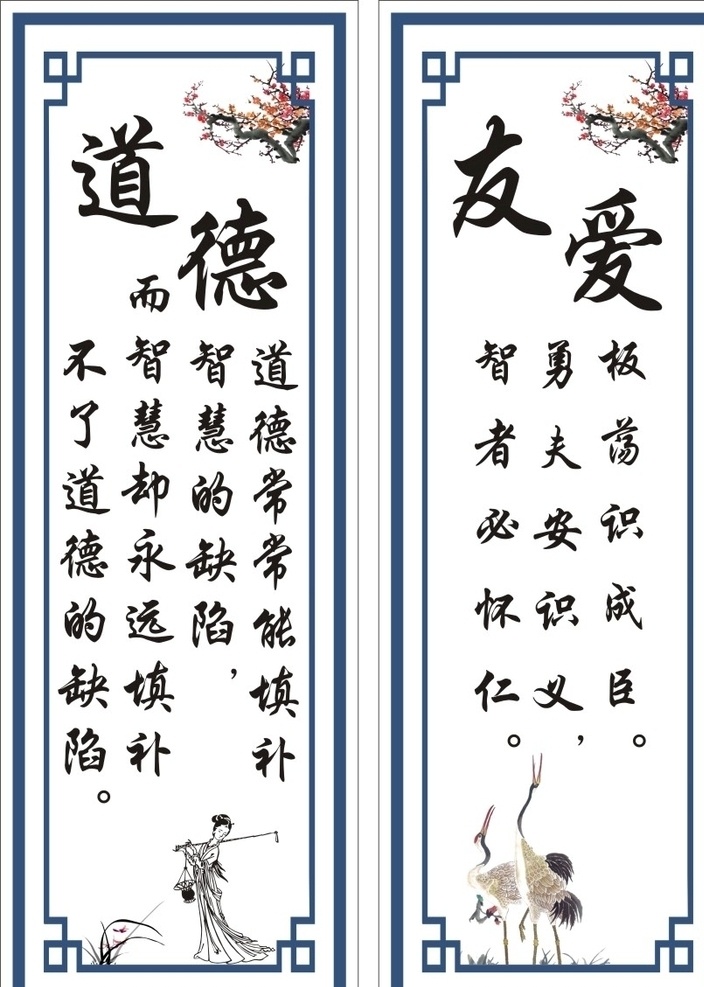 道德
道德常常能填补
智慧的缺陷，
而智慧却永远填补
不了道德的缺陷。
友爱
板荡识成臣。
勇夫安识义，
智者必怀仁。